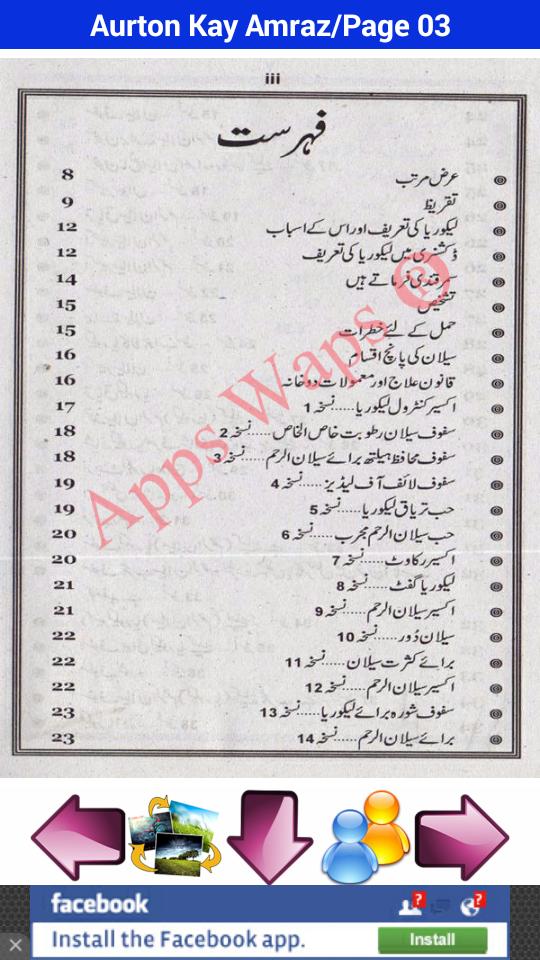 Aurton Kay Amraz/Page 03
iii
فہرست
عرض مرتب 8
تقریظ 9
لیکوریا کی تعریف اور اس کے اسباب 12
ڈکشنری میں لیکوریا کی تعریف 12
سمرقندی فرماتے ہیں 14
تشخیص 15
حمل کے لئے خطرات 15
سیلان کی پانچ اقسام 16
قانون علاج اور معمولات دوخانہ 16
اکسیر کنٹرول لیکوریا.....نسخہ 1 17
سفوف سیلان رطوبت خاص الخاص.....نسخہ 2 18
سفوف محافظ ہیلتھ برائے سیلان الرحم.....نسخہ 3 18
سفوف لائف آف لیڈیز.....نسخہ 4 19
حب تریاق لیکوریا.....نسخہ 5 19
حب سیلان الرحم مجرب.....نسخہ 6 20
اکسیر رکاوٹ.....نسخہ 7 20
لیکوریا گفٹ.....نسخہ 8 21
اکسیر سیلان الرحم.....نسخہ 9 21
سیلان دُور.....نسخہ 10 22
برائے کثرت سیلان.....نسخہ 11 22
اکسیر سیلان الرحم.....نسخہ 12 22
سفوف شورہ برائے لیکوریا.....نسخہ 13 23
برائے سیلان الرحم.....نسخہ 14 23
Apps Waps ®
facebook
? ?
Install the Facebook app.
Install